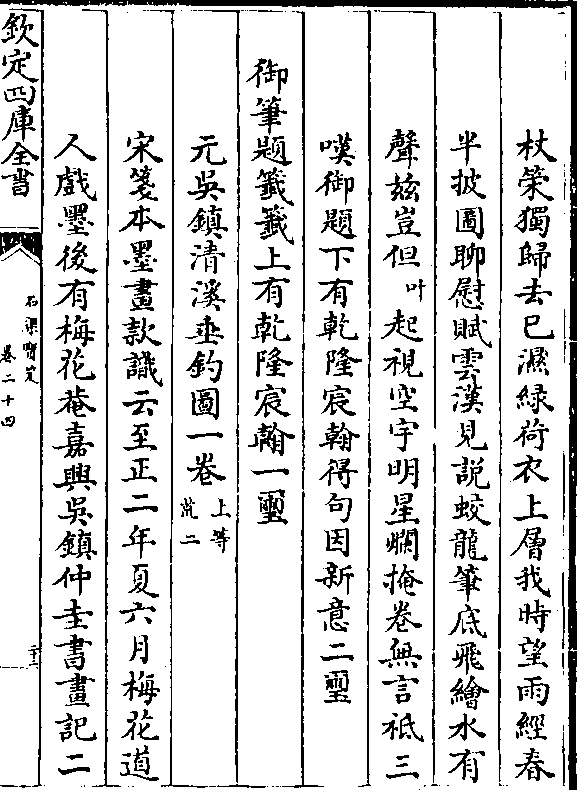 杖策獨歸去已濕緑荷衣上層我時望雨經春
半披圖聊慰賦雲漢見説蛟龍筆底飛繪水有
聲兹豈但叶起視空宇明星爛掩卷無言祗三
嘆御題下有乾隆宸翰得句因新意二璽
御筆題籤籤上有乾隆宸翰一璽
元吳鎮清溪垂釣圖一卷上等荒二
宋箋本墨畫款識云至正二年夏六月梅花道
人戲墨後有梅花菴嘉興吳鎮仲圭書畫記二
欽定四庫全書
石渠寶笈
卷二十四